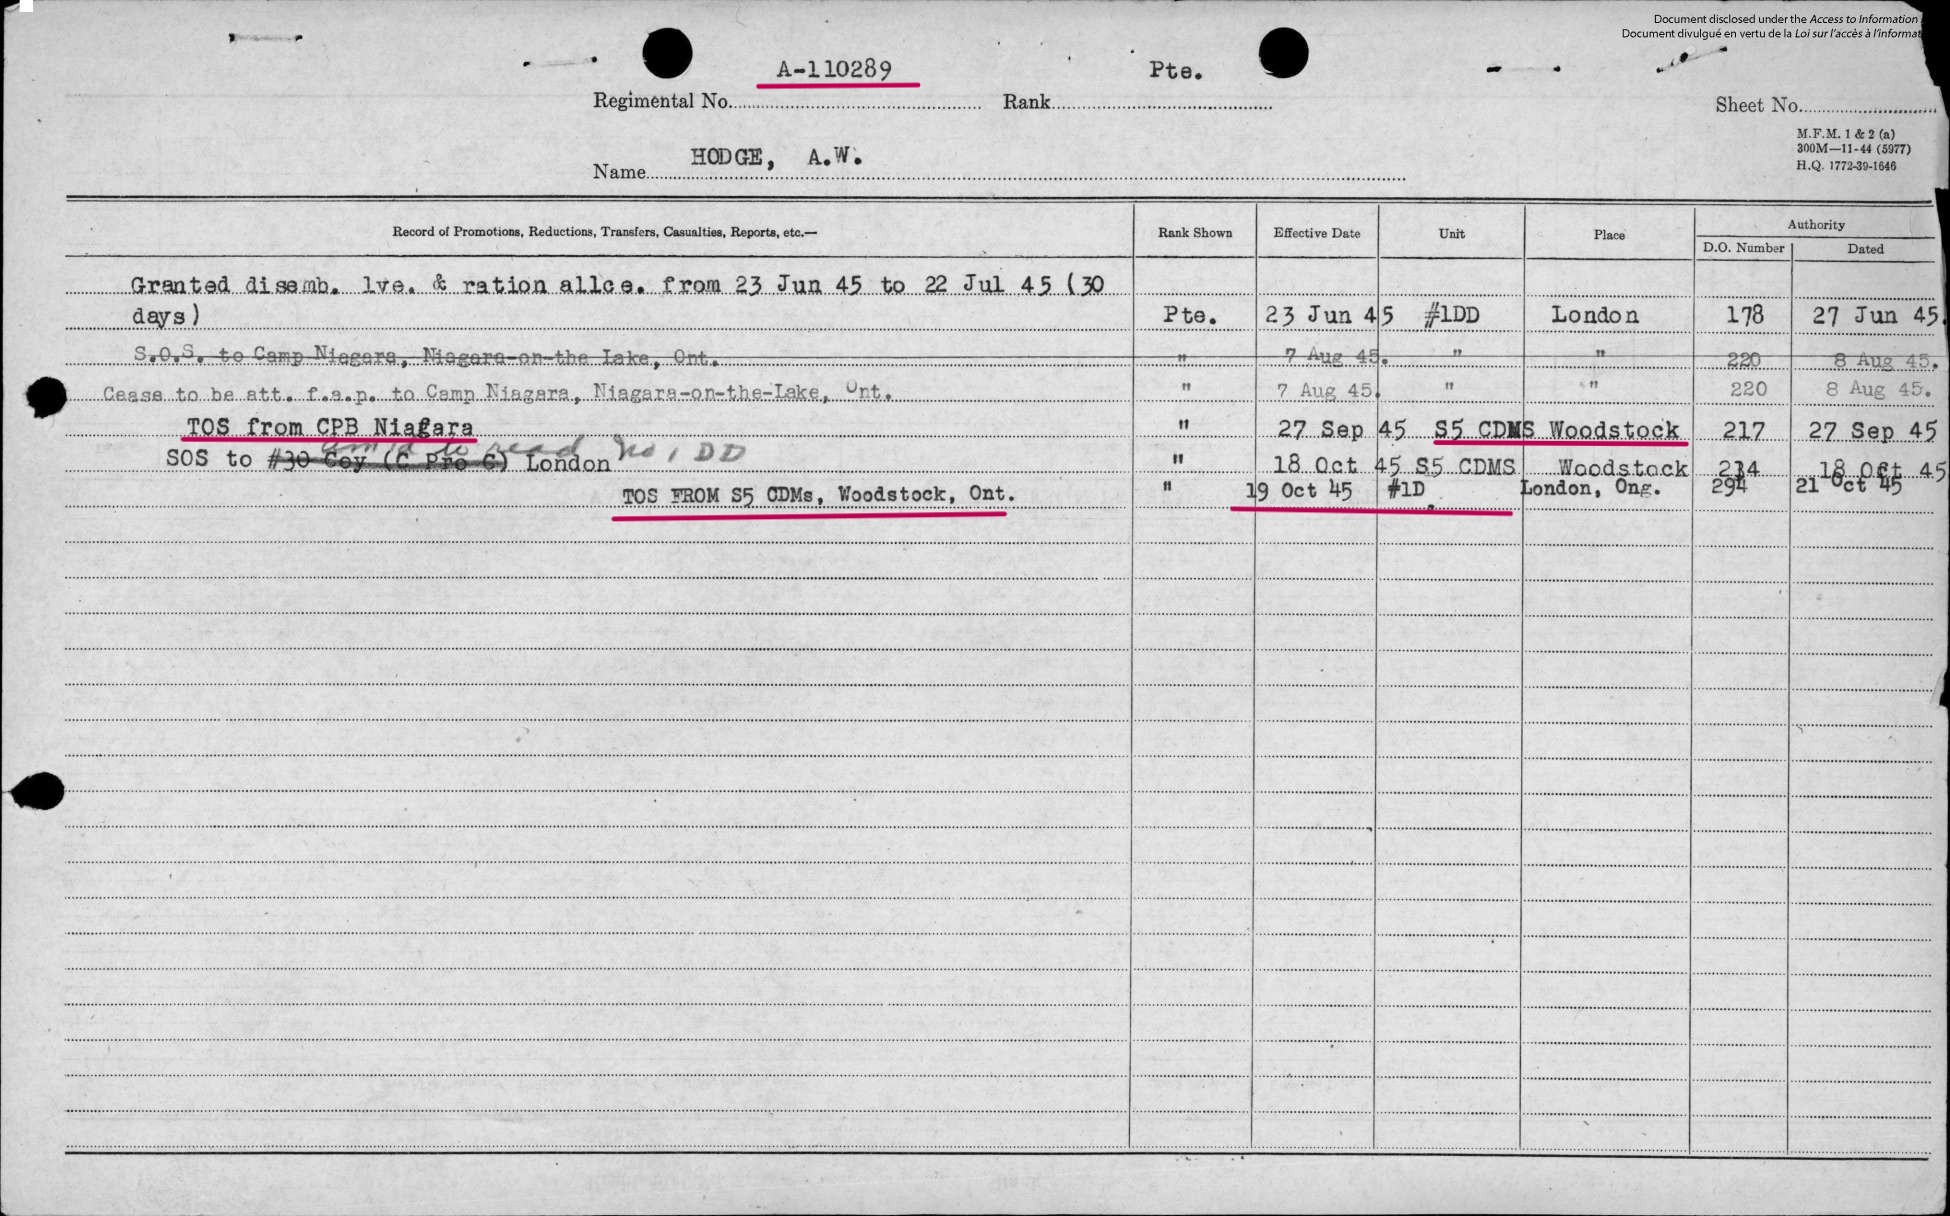 Document disclosed under the Access to Information
Document divulgué en vertu de la Loi sur l'accès à l'informat
A-110289 Pte.
Regimental No. Rank
Sheet No.
M.F.M. 1 & 2 (a)
300M—11-44 (5977)
H.Q. 1772-39-1646
HODGE, A.W.
Name
Record of Promotions, Reductions, Transfers, Casualties, Reports, etc.— Rank Shown Effective Date Unit Place Authority
D.O. Number Dated
Granted disemb. lve. & ration allce. from 23 Jun 45 to 22 Jul 45 (30
days) Pte. 23 Jun 45 #1DD London 178 27 Jun 45.
S.O.S. to Camp Niagara, Niagara-on-the Lake, Ont. " 7 Aug 45. " " 220 8 Aug 45.
Cease to be att. f.a.p. to Camp Niagara, Niagara-on-the-Lake, Ont. " 7 Aug 45. " " 220 8 Aug 45.
TOS from CPB Niagara " 27 Sep 45 S5 CDMS Woodstock 217 27 Sep 45
am'd to read No 1 DD
SOS to #30 Coy (C Pro C) London " 18 Oct 45 S5 CDMS Woodstock 234 18 Oct 45
TOS FROM S5 CDMs, Woodstock, Ont. " 19 Oct 45 #1D London, Ong. 294 21 Oct 45